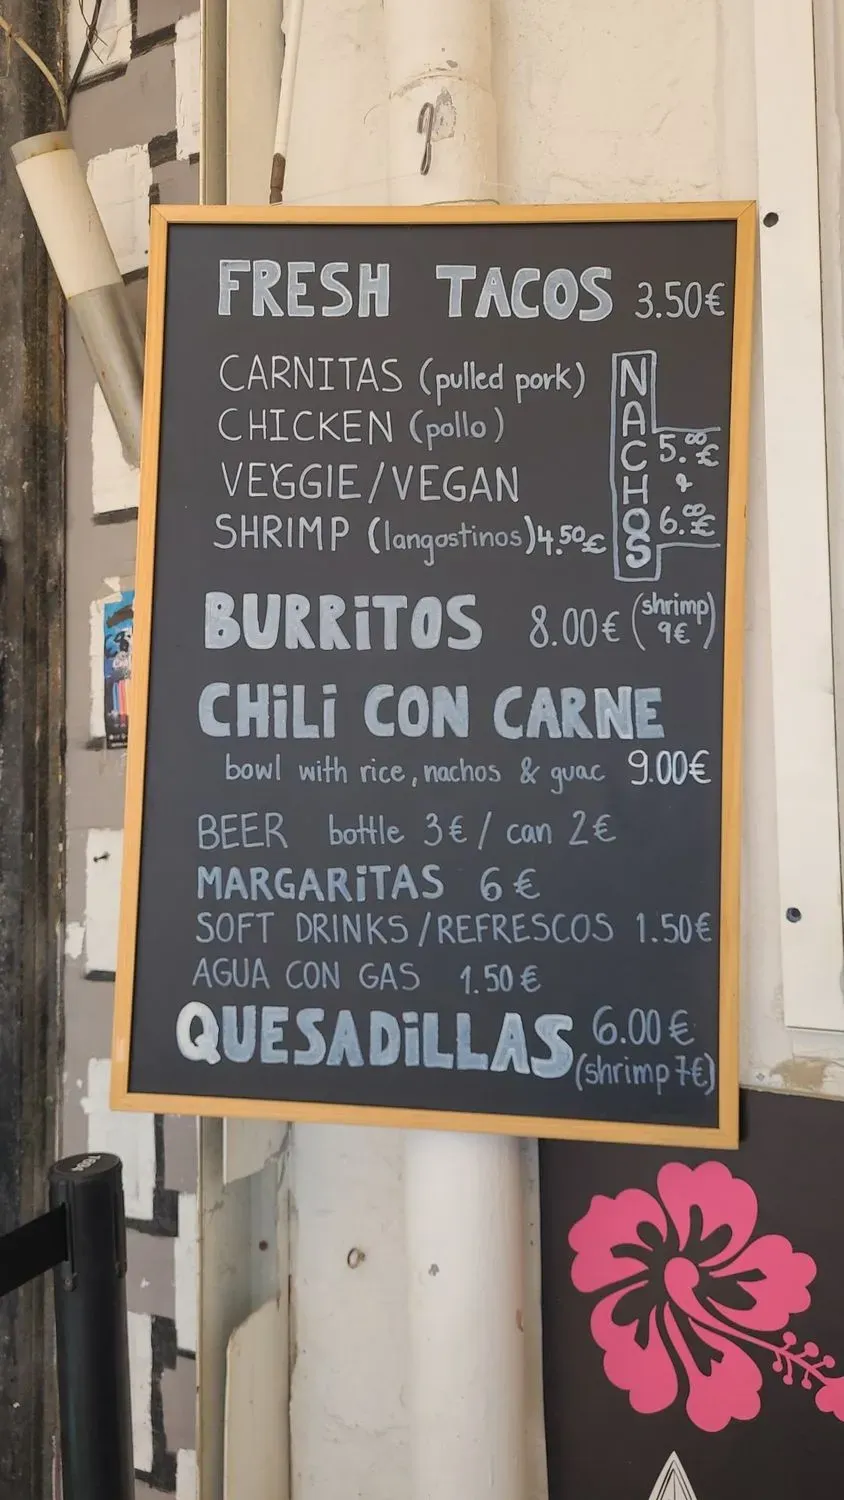 FRESH TACOS 3.50€
CARNITAS (pulled pork)
CHICKEN (pollo)
VEGGIE/VEGAN
SHRIMP (langostinos) 4.50€
NACHOS
5.00€
&
6.00€
BURRiTOS 8.00€ (shrimp) 9€
CHiLi CON CARNE
bowl with rice, nachos & guac 9.00€
BEER bottle 3€ / can 2€
MARGARiTAS 6€
SOFT DRINKS/REFRESCOS 1.50€
AGUA CON GAS 1.50€
QUESADiLLAS 6.00€
(shrimp 7€)